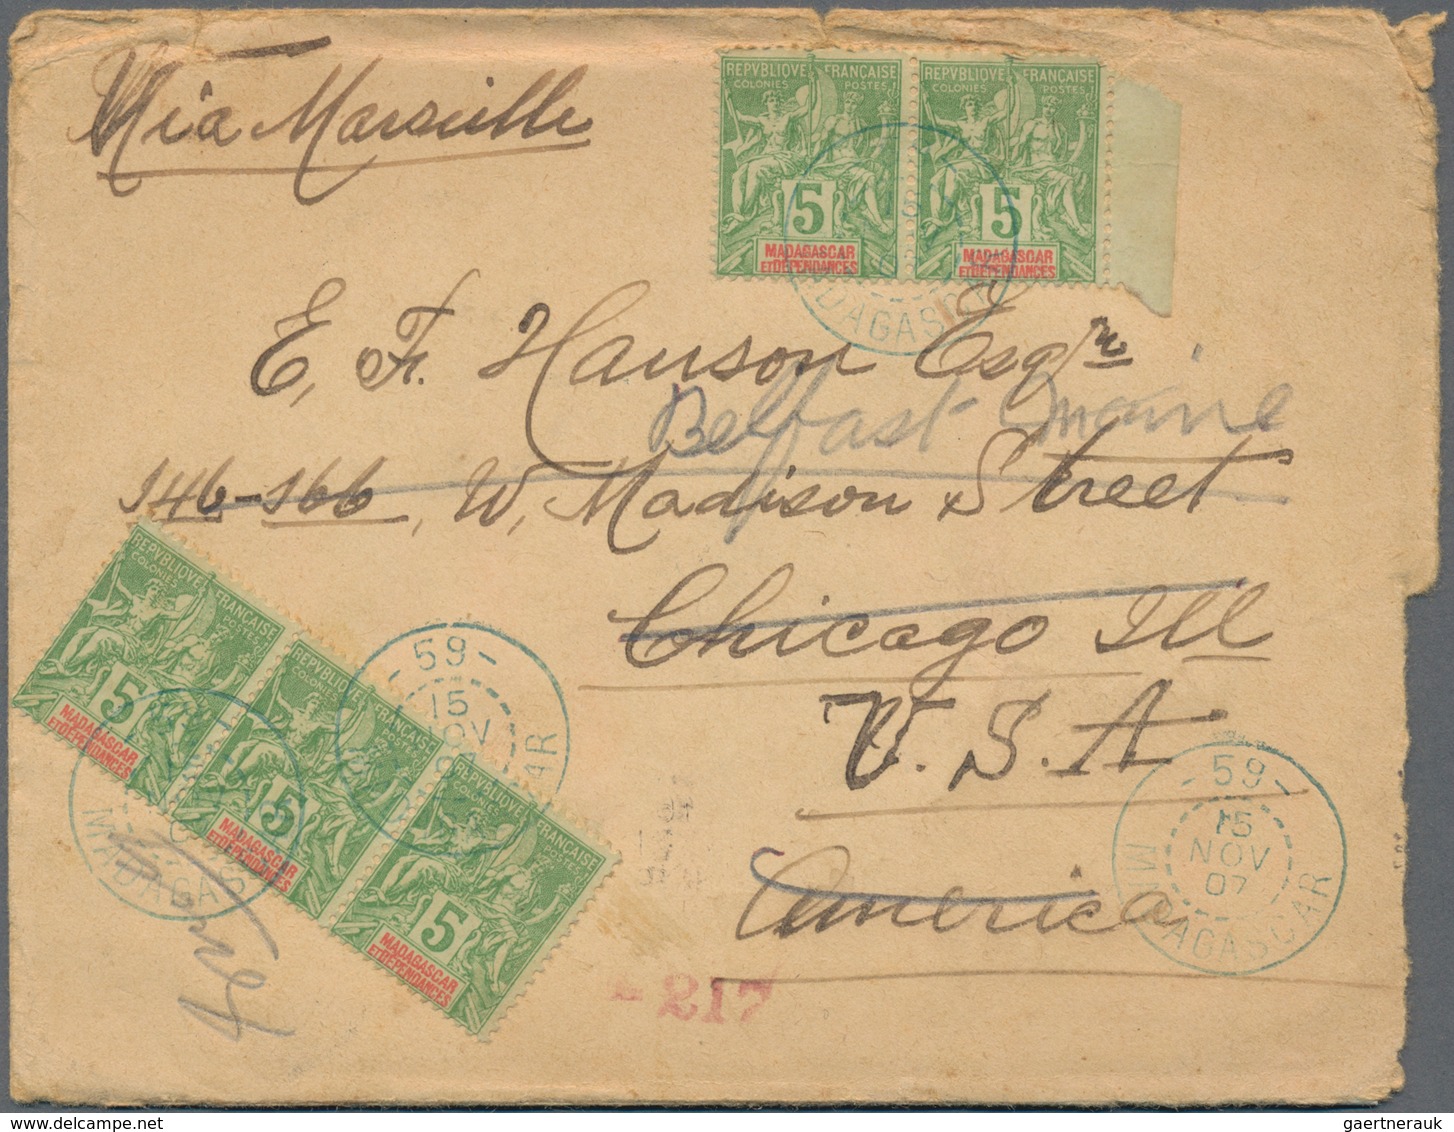 Via Marseille
REPVBLIQVE FRANÇAISE
COLONIES POSTES
5
MADAGASCAR
ET DÉPENDANCES
REPVBLIQVE FRANÇAISE
COLONIES POSTES
5
MADAGASCAR
ET DÉPENDANCES
MADAGASCAR
E. F. Hanson Esqre
Belfast Maine
146-166, W. Madison Street
Chicago Ill
U.S.A
America
REPVBLIQVE FRANÇAISE
COLONIES POSTES
5
MADAGASCAR
ET DÉPENDANCES
REPVBLIQVE FRANÇAISE
COLONIES POSTES
5
MADAGASCAR
ET DÉPENDANCES
REPVBLIQVE FRANÇAISE
COLONIES POSTES
5
MADAGASCAR
ET DÉPENDANCES
-59-
15
NOV
MADAGASCAR
-59-
15
NOV
07
MADAGASCAR
217
gaertnerauk